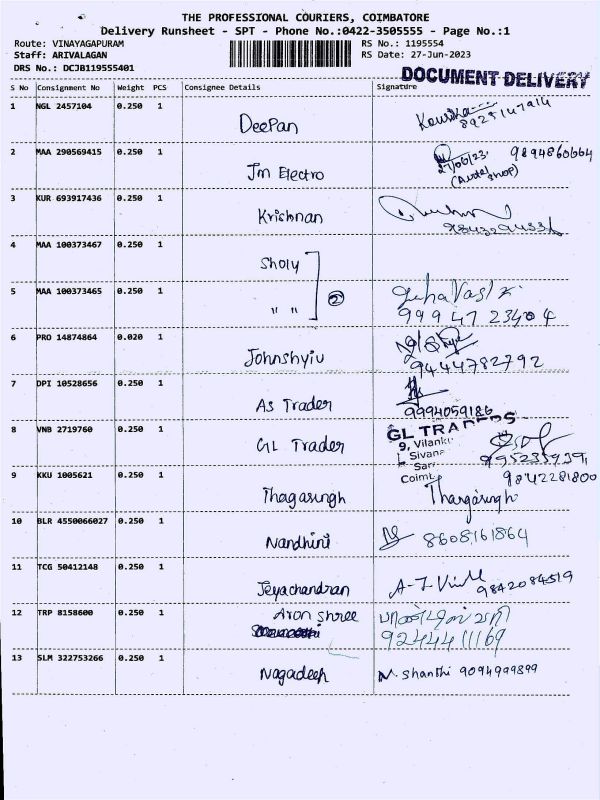 THE PROFESSIONAL COURIERS, COIMBATORE
Delivery Runsheet - SPT - Phone No.:0422-3505555 - Page No.:1
Route: VINAYAGAPURAM RS No.: 1195554
Staff: ARIVALAGAN RS Date: 27-Jun-2023
DRS No.: DCJB119555401
DOCUMENT DELIVERY
S No Consignment No Weight PCS Consignee Details Signature
1 NGL 2457104 0.250 1
Deepan 8925147914
2 MAA 290569415 0.250 1
Jm Electro 27/06/23 9894860664
3 KUR 693917436 0.250 1
Krishnan
4 MAA 100373467 0.250 1
Sholy
5 MAA 100373465 0.250 1
" " ②
99947 23404
6 PRO 14874864 0.020 1
Johnshyiu 9444782792
7 DPI 10528656 0.250 1
As Trader 9994059186
8 VNB 2719760 0.250 1
GL TRADERS
9, Vilank
Sivana
GL Trader
Coimb
9 KKU 1005621 0.250 1 9842281800
Thagasingh Thangasingh
10 BLR 4550066027 0.250 1
Nandhini 8608161864
11 TCG 50412148 0.250 1
Jeyachandran 9842084519
12 TRP 8158600 0.250 1
Aron Shree
9244411169
13 SLM 322753266 0.250 1
Nagadeep N. Shanthi 9094999899